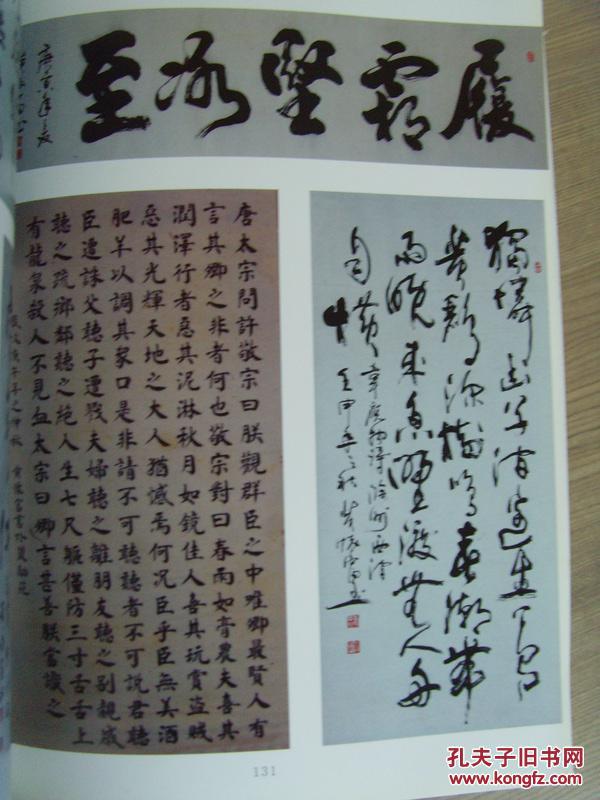 履霜堅冰至
庚寅年夏
獨憐幽草澗邊生上有
黃鸝深樹鳴春潮帶
雨晚來急野渡無人舟
自橫
韋應物詩滁州西澗
唐太宗問許敬宗曰朕觀群臣之中唯卿最賢人有
言其卿之非者何也敬宗對曰春雨如膏農夫喜其
潤澤行者惡其泥淋秋月如鏡佳人喜其玩賞盜賊
惡其光輝天地之大人猶憾焉何況臣乎臣無美酒
肥羊以調其家口是非請不可聽聽者不可說君聽
臣遭誅父聽子遭戮夫婦聽之離朋友聽之別親戚
聽之疏鄉鄰聽之絕人生七尺軀僅防三寸舌舌上
有龍泉殺人不見血太宗曰卿言甚善朕當識之
131
孔夫子旧书网
www.kongfz.com